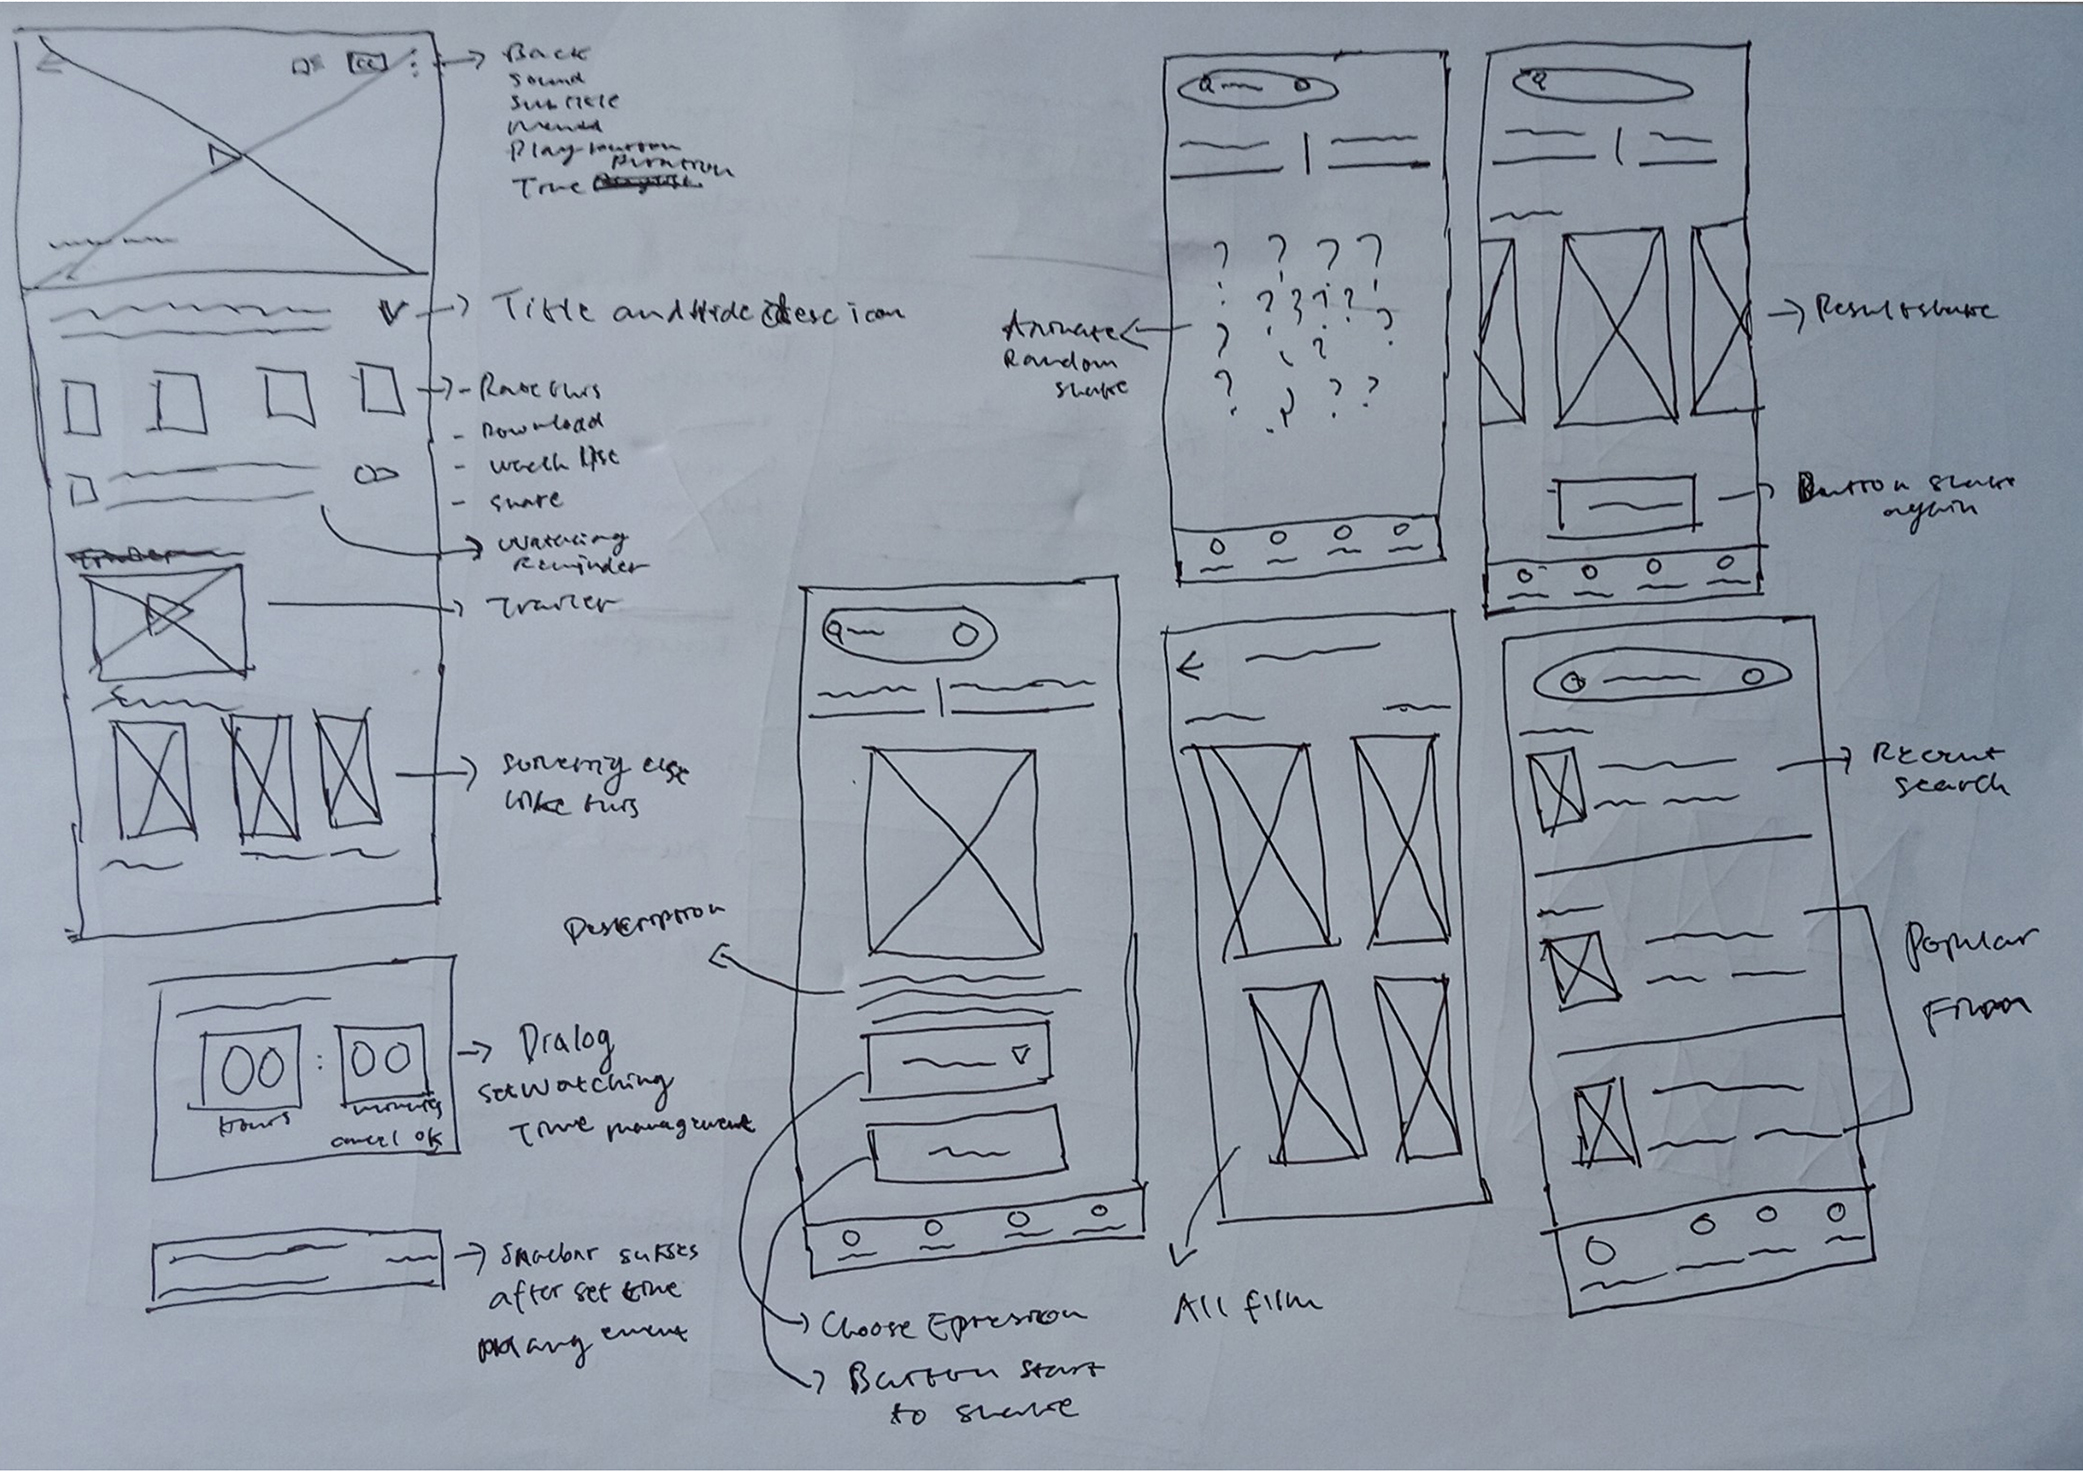 CC
Back
Sound
Subtitle
Menu
Play button
Duration
Time
Title and Hide desc icon
- Rate this
- Download
- Watch list
- Share
Watching
Reminder
Trailer
Someting else
like this
00 : 00
Hours
minutes
cancel OK
Dialog
set watching
Time management
Snacbar sukses
after set time
Description
Choose Epresion
Button start
to shake
Animate
Random
shake
? ? ? ?
? ? ? ?
? ? ?
? ? ? ?
Result shake
Button shake
again
All film
Recent
search
Popular